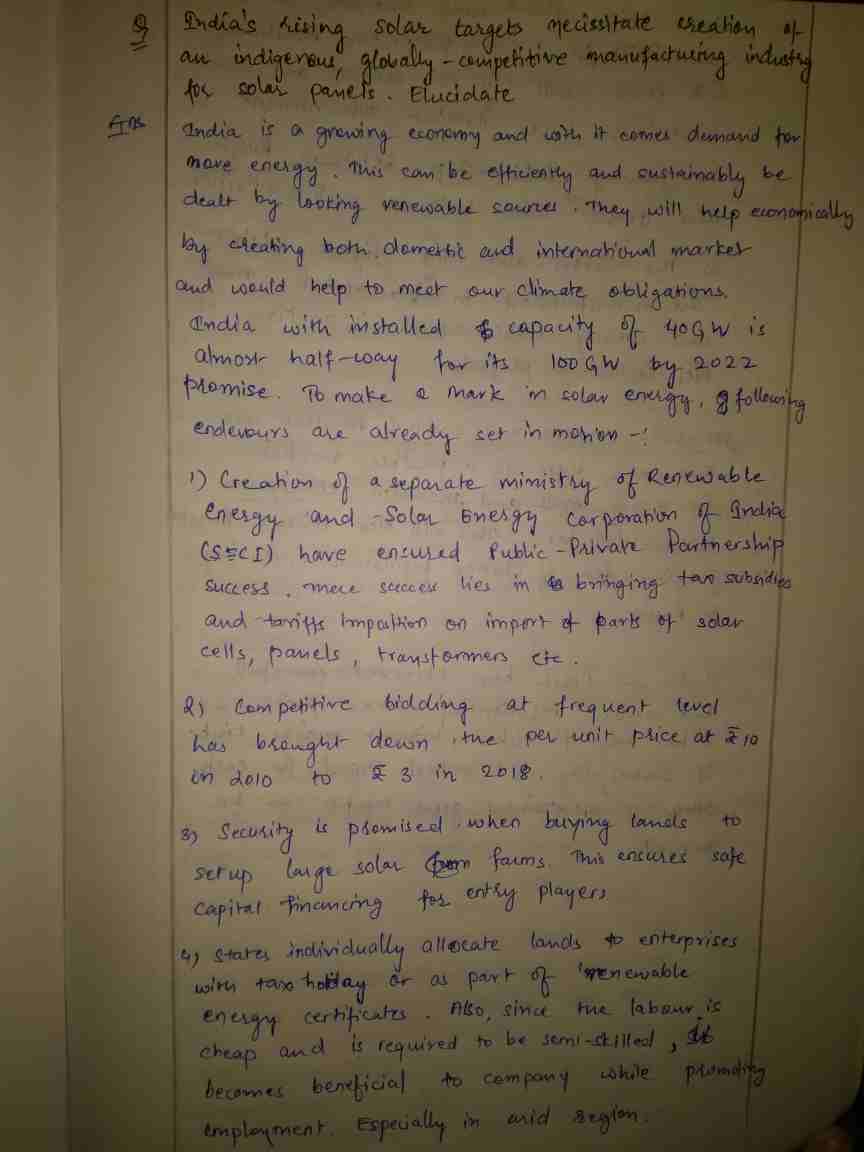 Q India's rising solar targets necissitate creation of
an indigenous, globally-competitive manufacturing industry
for solar panels. Elucidate
Ans India is a growing economy and with it comes demand for
more energy. This can be efficiently and sustainably be
dealt by looking renewable sources. They will help economically
by creating both domestic and international market
and would help to meet our climate obligations.
India with installed capacity of 40GW is
almost half-way for its 100GW by 2022
promise. To make a mark in solar energy, following
endevours are already set in motion -:
1) Creation of a separate ministry of Renewable
Energy and Solar Energy Corporation of India
(SECI) have ensured Public-Private Partnership
success. mere success lies in bringing tax subsidies
and tariffs impostion on import of parts of solar
cells, panels, transformers etc.
2) Competitive bidding at frequent level
has brought down the per unit price at ₹10
in 2010 to ₹3 in 2018.
3) Security is promised when buying lands to
setup large solar farms. This ensures safe
capital financing for entry players
4) States individually allocate lands to enterprises
with tax holiday or as part of renewable
energy certificates. Also, since the labour is
cheap and is required to be semi-skilled, it
becomes beneficial to company while promoting
employment. Especially in arid region.